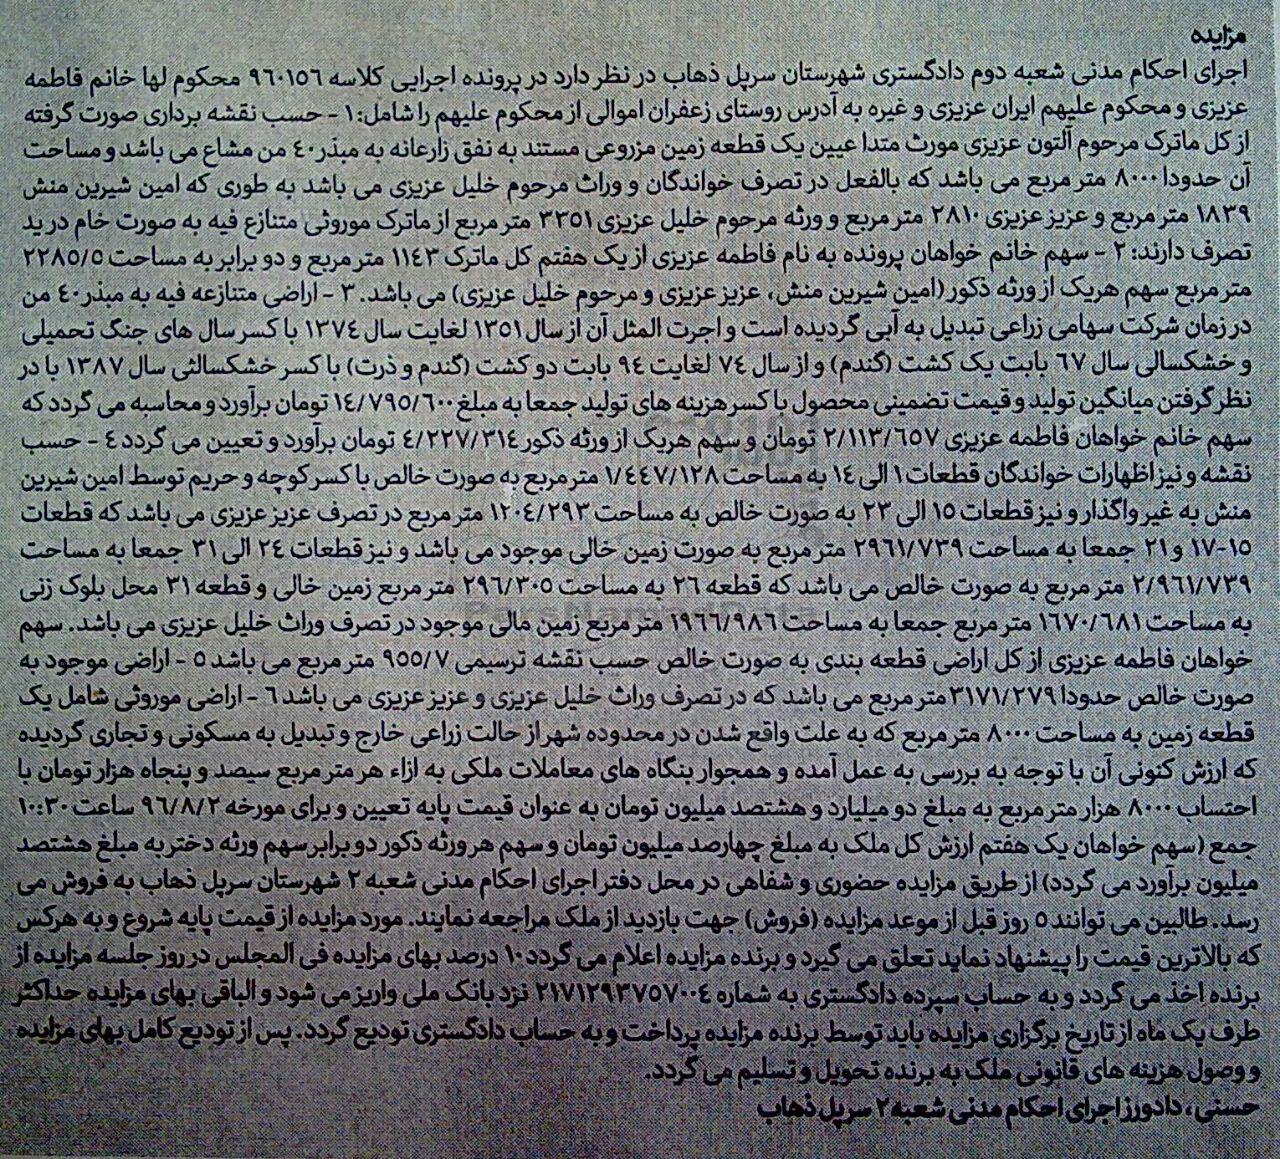 مزایده
اجرای احکام مدنی شعبه دوم دادگستری شهرستان سرپل ذهاب در نظر دارد در پرونده اجرایی کلاسه ۹۶۰۱۵۶ محکوم لها خانم فاطمه
عزیزی و محکوم علیهم ایران عزیزی و غیره به آدرس روستای زعفران اموالی از محکوم علیهم را شامل: ۱ - حسب نقشه برداری صورت گرفته
از کل ماترک مرحوم آلتون عزیزی مورث متدا عیین یک قطعه زمین مزروعی مستند به نفق زارعانه به مبذر ۴۰ من مشاع می باشد و مساحت
آن حدودا ۸۰۰۰ متر مربع می باشد که بالفعل در تصرف خواندگان و وراث مرحوم خلیل عزیزی می باشد به طوری که امین شیرین منش
۱۸۳۹ متر مربع و عزیز عزیزی ۲۸۱۰ متر مربع و ورثه مرحوم خلیل عزیزی ۳۳۵۱ متر مربع از ماترک موروثی متنازع فیه به صورت خام در ید
تصرف دارند: ۲ - سهم خانم خواهان پرونده به نام فاطمه عزیزی از یک هفتم کل ماترک ۱۱۴۳ متر مربع و دو برابر به مساحت ۲۲۸۵/۵
متر مربع سهم هریک از ورثه ذکور (امین شیرین منش، عزیز عزیزی و مرحوم خلیل عزیزی) می باشد. ۳ - اراضی متنازعه فیه به مبذر ۴۰ من
در زمان شرکت سهامی زراعی تبدیل به آبی گردیده است و اجرت المثل آن از سال ۱۳۵۱ لغایت سال ۱۳۷۴ با کسر سال های جنگ تحمیلی
و خشکسالی سال ۶۷ بابت یک کشت (گندم) و از سال ۷۴ لغایت ۹۴ بابت دو کشت (گندم و ذرت) با کسر خشکسالثی سال ۱۳۸۷ با در
نظر گرفتن میانگین تولید و قیمت تضمینی محصول با کسر هزینه های تولید جمعا به مبلغ ۱۴/۷۹۵/۶۰۰ تومان برآورد و محاسبه می گردد که
سهم خانم خواهان فاطمه عزیزی ۲/۱۱۳/۶۵۷ تومان و سهم هریک از ورثه ذکور ۴/۲۲۷/۳۱۴ تومان برآورد و تعیین می گردد ۴ - حسب
نقشه و نیز اظهارات خواندگان قطعات ۱ الی ۱۴ به مساحت ۱/۴۴۷/۱۲۸ متر مربع به صورت خالص با کسر کوچه و حریم توسط امین شیرین
منش به غیر واگذار و نیز قطعات ۱۵ الی ۲۳ به صورت خالص به مساحت ۱۲۰۴/۲۹۳ متر مربع در تصرف عزیز عزیزی می باشد که قطعات
۱۵-۱۷ و ۲۱ جمعا به مساحت ۲۹۶۱/۷۳۹ متر مربع به صورت زمین خالی موجود می باشد و نیز قطعات ۲۴ الی ۳۱ جمعا به مساحت
۲/۹۶۱/۷۳۹ متر مربع به صورت خالص می باشد که قطعه ۲۶ به مساحت ۲۹۶/۳۰۵ متر مربع زمین خالی و قطعه ۳۱ محل بلوک زنی
به مساحت ۱۶۷۰/۶۸۱ متر مربع جمعا به مساحت ۱۹۶۶/۹۸۶ متر مربع زمین مالی موجود در تصرف وراث خلیل عزیزی می باشد. سهم
خواهان فاطمه عزیزی از کل اراضی قطعه بندی به صورت خالص حسب نقشه ترسیمی ۹۵۵/۷ متر مربع می باشد ۵ - اراضی موجود به
صورت خالص حدودا ۳۱۷۱/۲۷۹ متر مربع می باشد که در تصرف وراث خلیل عزیزی و عزیز عزیزی می باشد ۶ - اراضی موروثی شامل یک
قطعه زمین به مساحت ۸۰۰۰ متر مربع که به علت واقع شدن در محدوده شهر از حالت زراعی خارج و تبدیل به مسکونی و تجاری گردیده
که ارزش کنونی آن با توجه به بررسی به عمل آمده و همجوار بنگاه های معاملات ملکی به ازاء هر متر مربع سیصد و پنجاه هزار تومان با
احتساب ۸۰۰۰ هزار متر مربع به مبلغ دو میلیارد و هشتصد میلیون تومان به عنوان قیمت پایه تعیین و برای مورخه ۹۶/۸/۲ ساعت ۱۰:۳۰
جمع (سهم خواهان یک هفتم ارزش کل ملک به مبلغ چهارصد میلیون تومان و سهم هر ورثه ذکور دو برابر سهم ورثه دختر به مبلغ هشتصد
میلیون برآورد می گردد) از طریق مزایده حضوری و شفاهی در محل دفتر اجرای احکام مدنی شعبه ۲ شهرستان سرپل ذهاب به فروش می
رسد. طالبین می توانند ۵ روز قبل از موعد مزایده (فروش) جهت بازدید از ملک مراجعه نمایند. مورد مزایده از قیمت پایه شروع و به هرکس
که بالاترین قیمت را پیشنهاد نماید تعلق می گیرد و برنده مزایده اعلام می گردد ۱۰ درصد بهای مزایده فی المجلس در روز جلسه مزایده از
برنده اخذ می گردد و به حساب سپرده دادگستری به شماره ۲۱۷۱۲۹۳۷۵۷۰۰۴ نزد بانک ملی واریز می شود و الباقی بهای مزایده حداکثر
ظرف یک ماه از تاریخ برگزاری مزایده باید توسط برنده مزایده پرداخت و به حساب دادگستری تودیع گردد. پس از تودیع کامل بهای مزایده
و وصول هزینه های قانونی ملک به برنده تحویل و تسلیم می گردد.
حسنی، دادورز اجرای احکام مدنی شعبه ۲ سرپل ذهاب